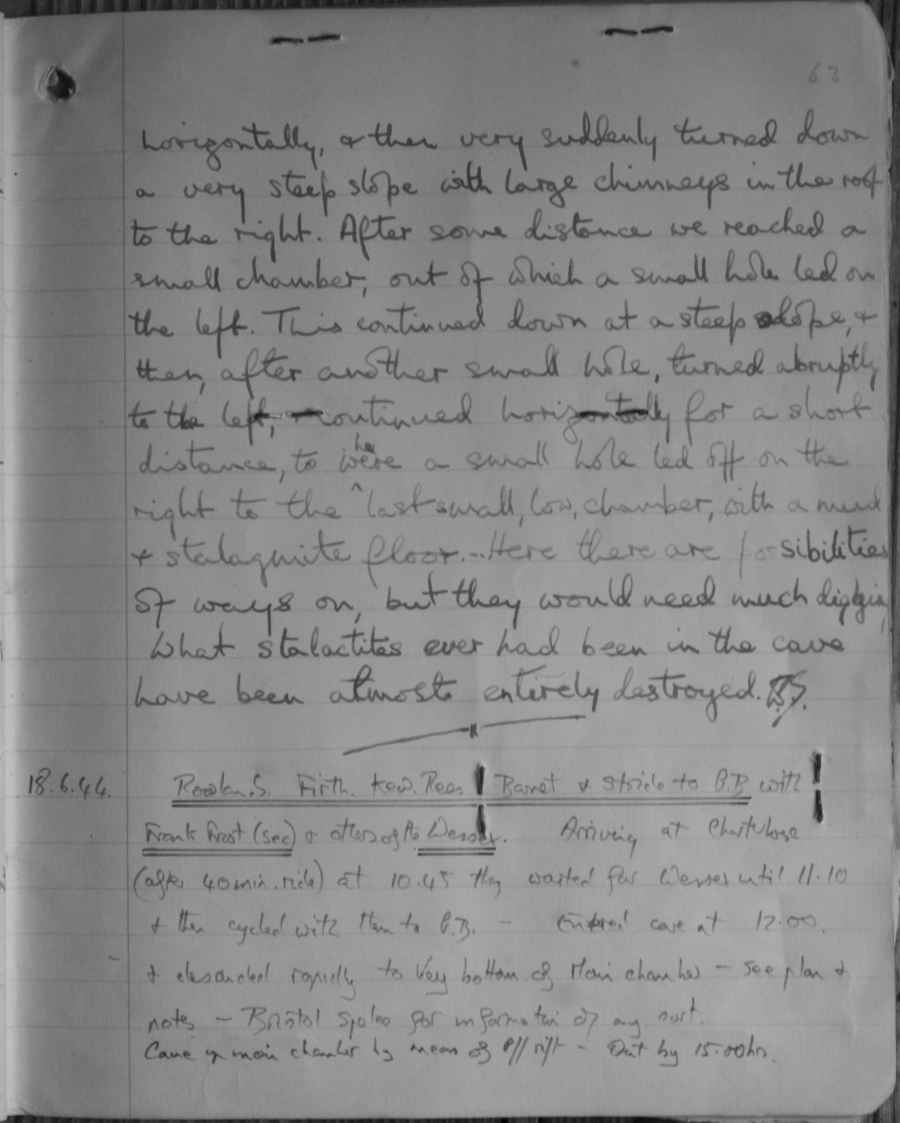 63
horizontally, & then very suddenly turned down
a very steep slope with large chimneys in the roof
to the right. After some distance we reached a
small chamber, out of which a small hole led on
the left. This continued down at a steep slope, &
then, after another small hole, turned abruptly
to the left, continued horizontally for a short
distance, to where a small hole led off on the
right to the last small, low, chamber, with a mud
& stalagmite floor. Here there are possibilities
of ways on, but they would need much diggin
What stalactites ever had been in the cave
have been almost entirely destroyed.
18.6.44. Firth. Rees Barnet & Stride to B.B with
Frank Frost (sec) & others of the Wessex. Arriving at
(after 40 min. ride) at 10.45 they waited for Wessex until 11.10
& then cycled with them to B.B. - Entered cave at 12.00.
& descended rapidly to very bottom of Main chamber - see plan &
notes - Bristol Speleo for information of any sort.
Came up main chamber by mean of rift - Out by 15.00hrs.